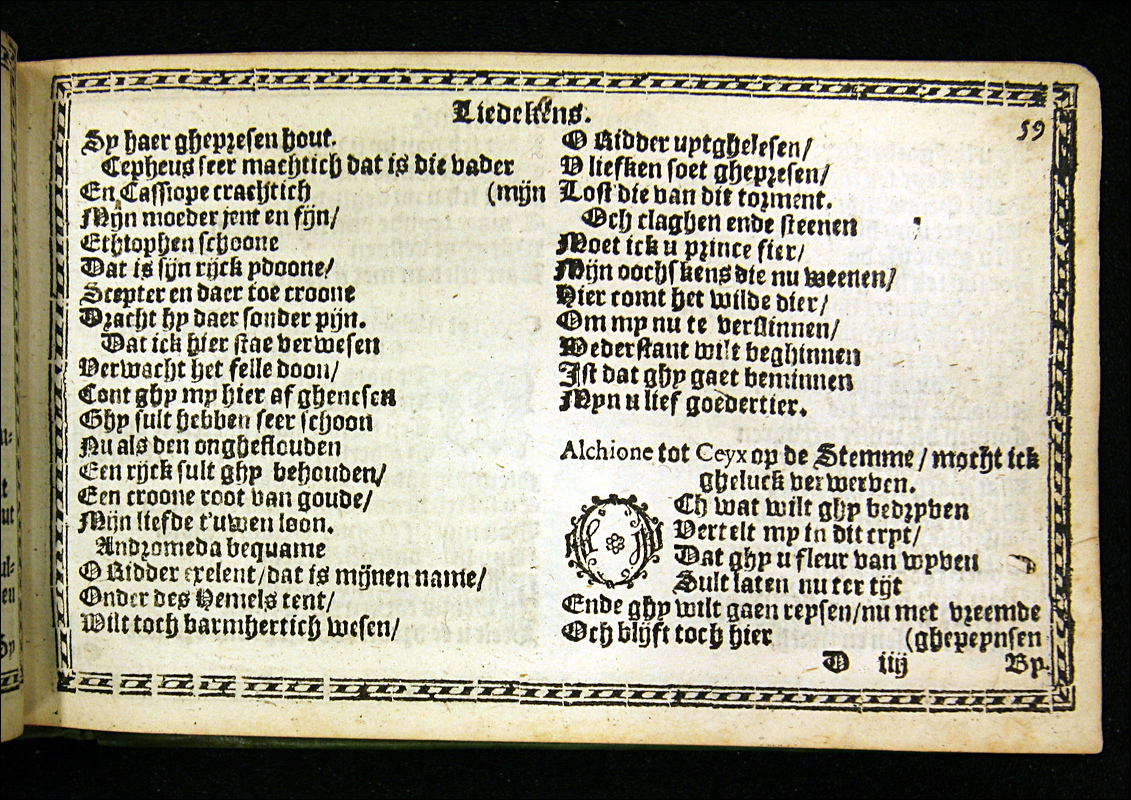 Liedekens.
59
Sy haer ghepresen hout.
Cepheus seer machtich dat is die vader
En Cassiope crachtich (mijn
Mijn moeder jent en fijn/
Ethiophen schoone
Dat is sijn rijck ydoone/
Scepter en daer toe croone
Dracht hy daer sonder pijn.
Dat ick hier stae verwesen
Verwacht het felle doon/
Cont ghy my hier af ghenesen
Ghy sult hebben seer schoon
Nu als den ongheflouden
Een rijck sult ghy behouden/
Een croone root van goude/
Mijn liefde t'uwen loon.
Andromeda bequame
O Ridder exelent/dat is mijnen name/
Onder des Hemels tent/
Wilt toch barmhertich wesen/
O Ridder uytghelesen/
V liefken soet ghepresen/
Lost die van dit torment.
Och claghen ende steenen
Moet ick u prince fier/
Mijn oochskens die nu weenen/
Hier comt het wilde dier/
Om my nu te verslinnen/
Wederstant wilt beghinnen
Ist dat ghy gaet beminnen
Myn u lief goedertier.
Alchione tot Ceyx op de Stemme/mocht ick
gheluck verwerven.
OCh wat wilt ghy bedryven
Vertelt my in dit cryt/
Dat ghy u fleur van wyven
Sult laten nu ter tijt
Ende ghy wilt gaen reysen/nu met vreemde
Och blijft toch hier (ghepeynsen
D iiij By